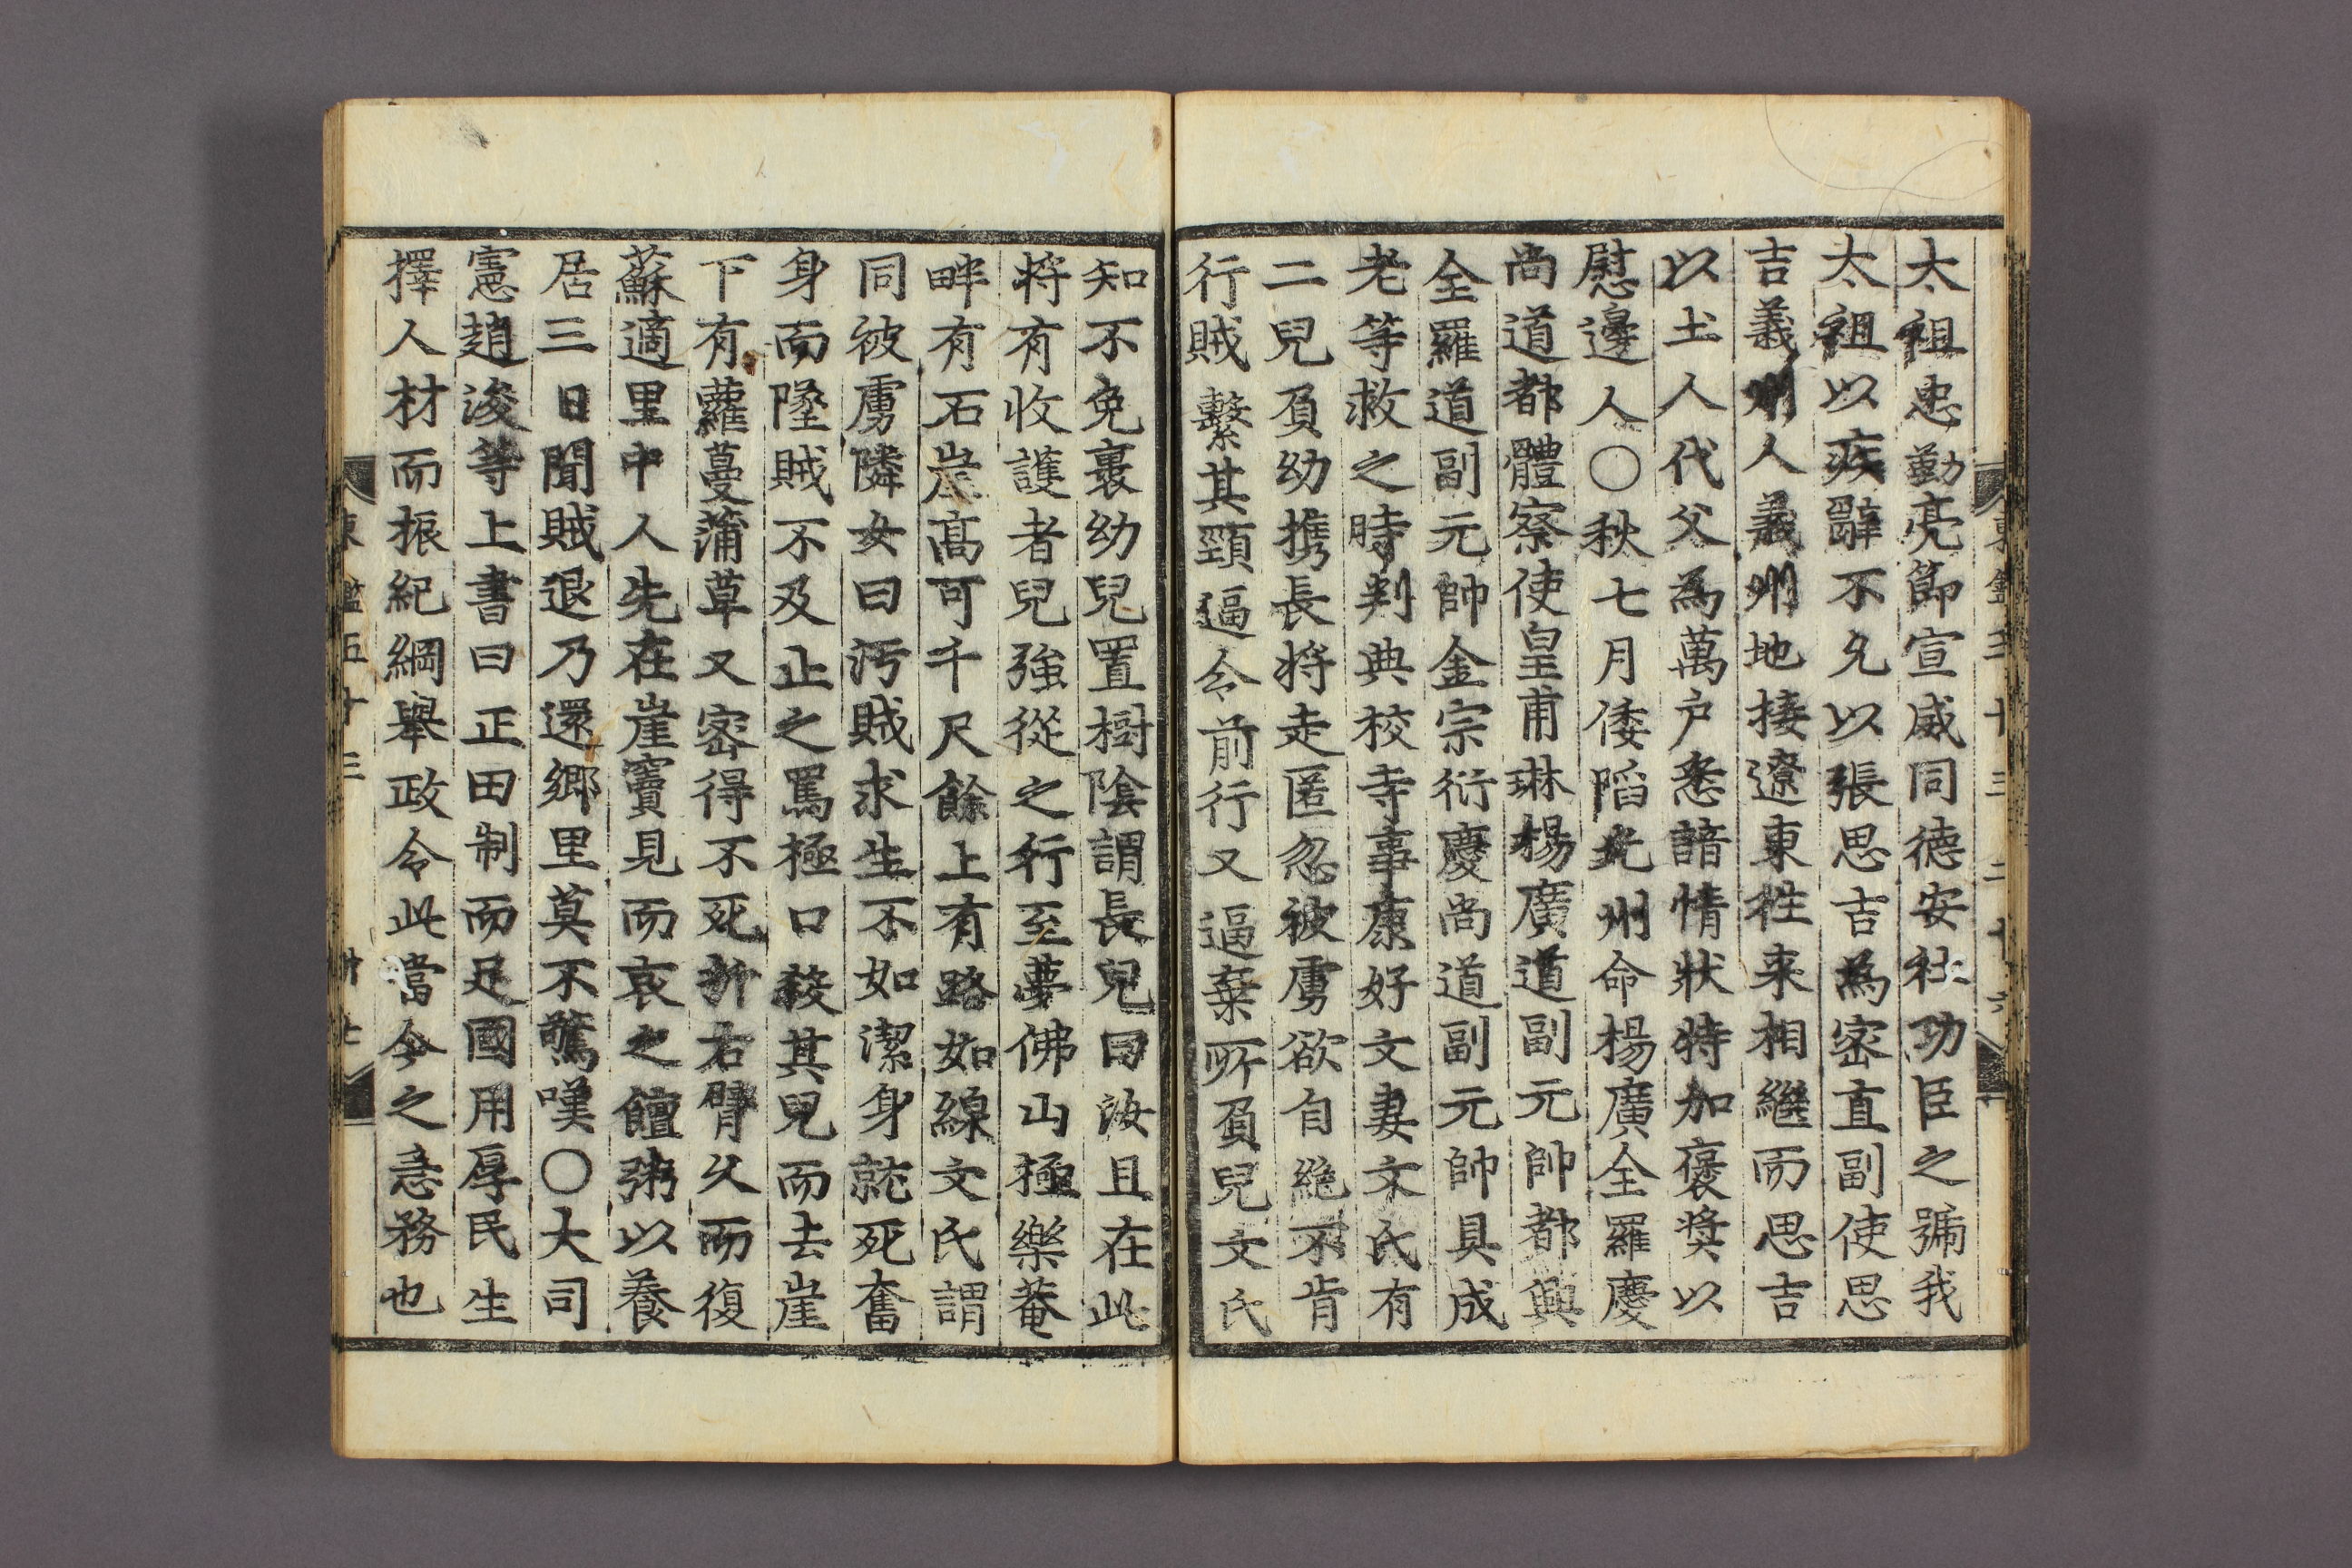 太祖忠勤亮節宣威同德安社功臣之號我
太祖以疾辭不允以張思吉為密直副使思
吉義州人義州地接遼東徃来相繼而思吉
以土人代父為萬户悉諳情狀特加褒奬以
慰邊人〇秋七月倭䧟光州命楊廣全羅慶
尚道都體察使皇甫琳楊廣道副元帥都興
全羅道副元帥金宗衍慶尚道副元帥具成
老等救之時判典校寺事康好文妻文氏有
二兒負幼携長将走匿忽被虜欲自絶不肯
行賊繫其頸逼令前行又逼棄所負兒文氏
知不免裹幼兒置樹陰謂長兒曰汝且在此
将有收護者兒強從之行至夢佛山極樂菴
畔有石崖高可千尺餘上有路如線文氏謂
同被虜隣女曰汚賊求生不如潔身就死奮
身而墜賊不及止之罵極口殺其兒而去崖
下有蘿蔓蒲草又密得不死折右臂久而復
蘇適里中人先在崖竇見而哀之饘粥以養
居三日聞賊退乃還鄉里莫不驚嘆〇大司
憲趙浚等上書曰正田制而足國用厚民生
擇人材而振紀綱舉政令此當今之急務也
東鑑五十三